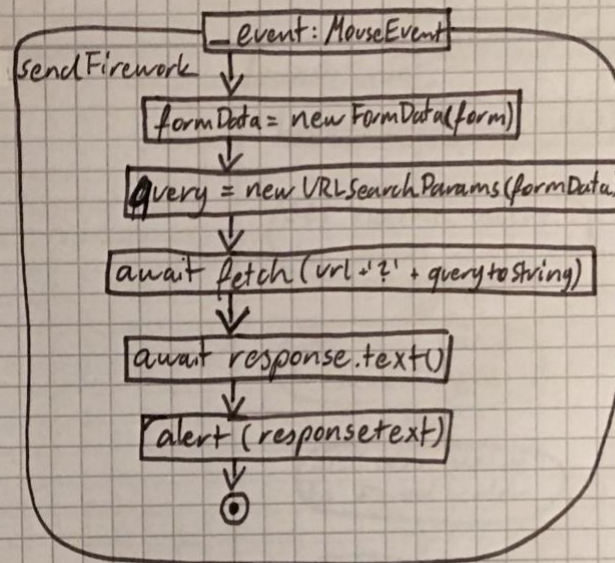 _event: MouseEvent
sendFirework
formData = new FormData(form)
query = new URLSearchParams(formData
await fetch (url +'?' + querytoString)
await response.text()
alert (responsetext)